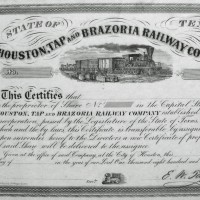 STATE OF TEX
HOUSTON, TAP AND BRAZORIA RAILWAY CO
No.
This Certifies that
the proprietor of Share No. in the Capital Stock
HOUSTON, TAP AND BRAZORIA RAILWAY COMPANY established
incorporation, passed by the Legislature of the State of Texas
and the by-laws, this Certificate is transferable by assignm
surrender hereof to the Directors a new Certificate of prop
will be delivered to the assignee
Given at the office of said Company, at the City of Houston, this
in the year of our Lord One thousand eight hundred and